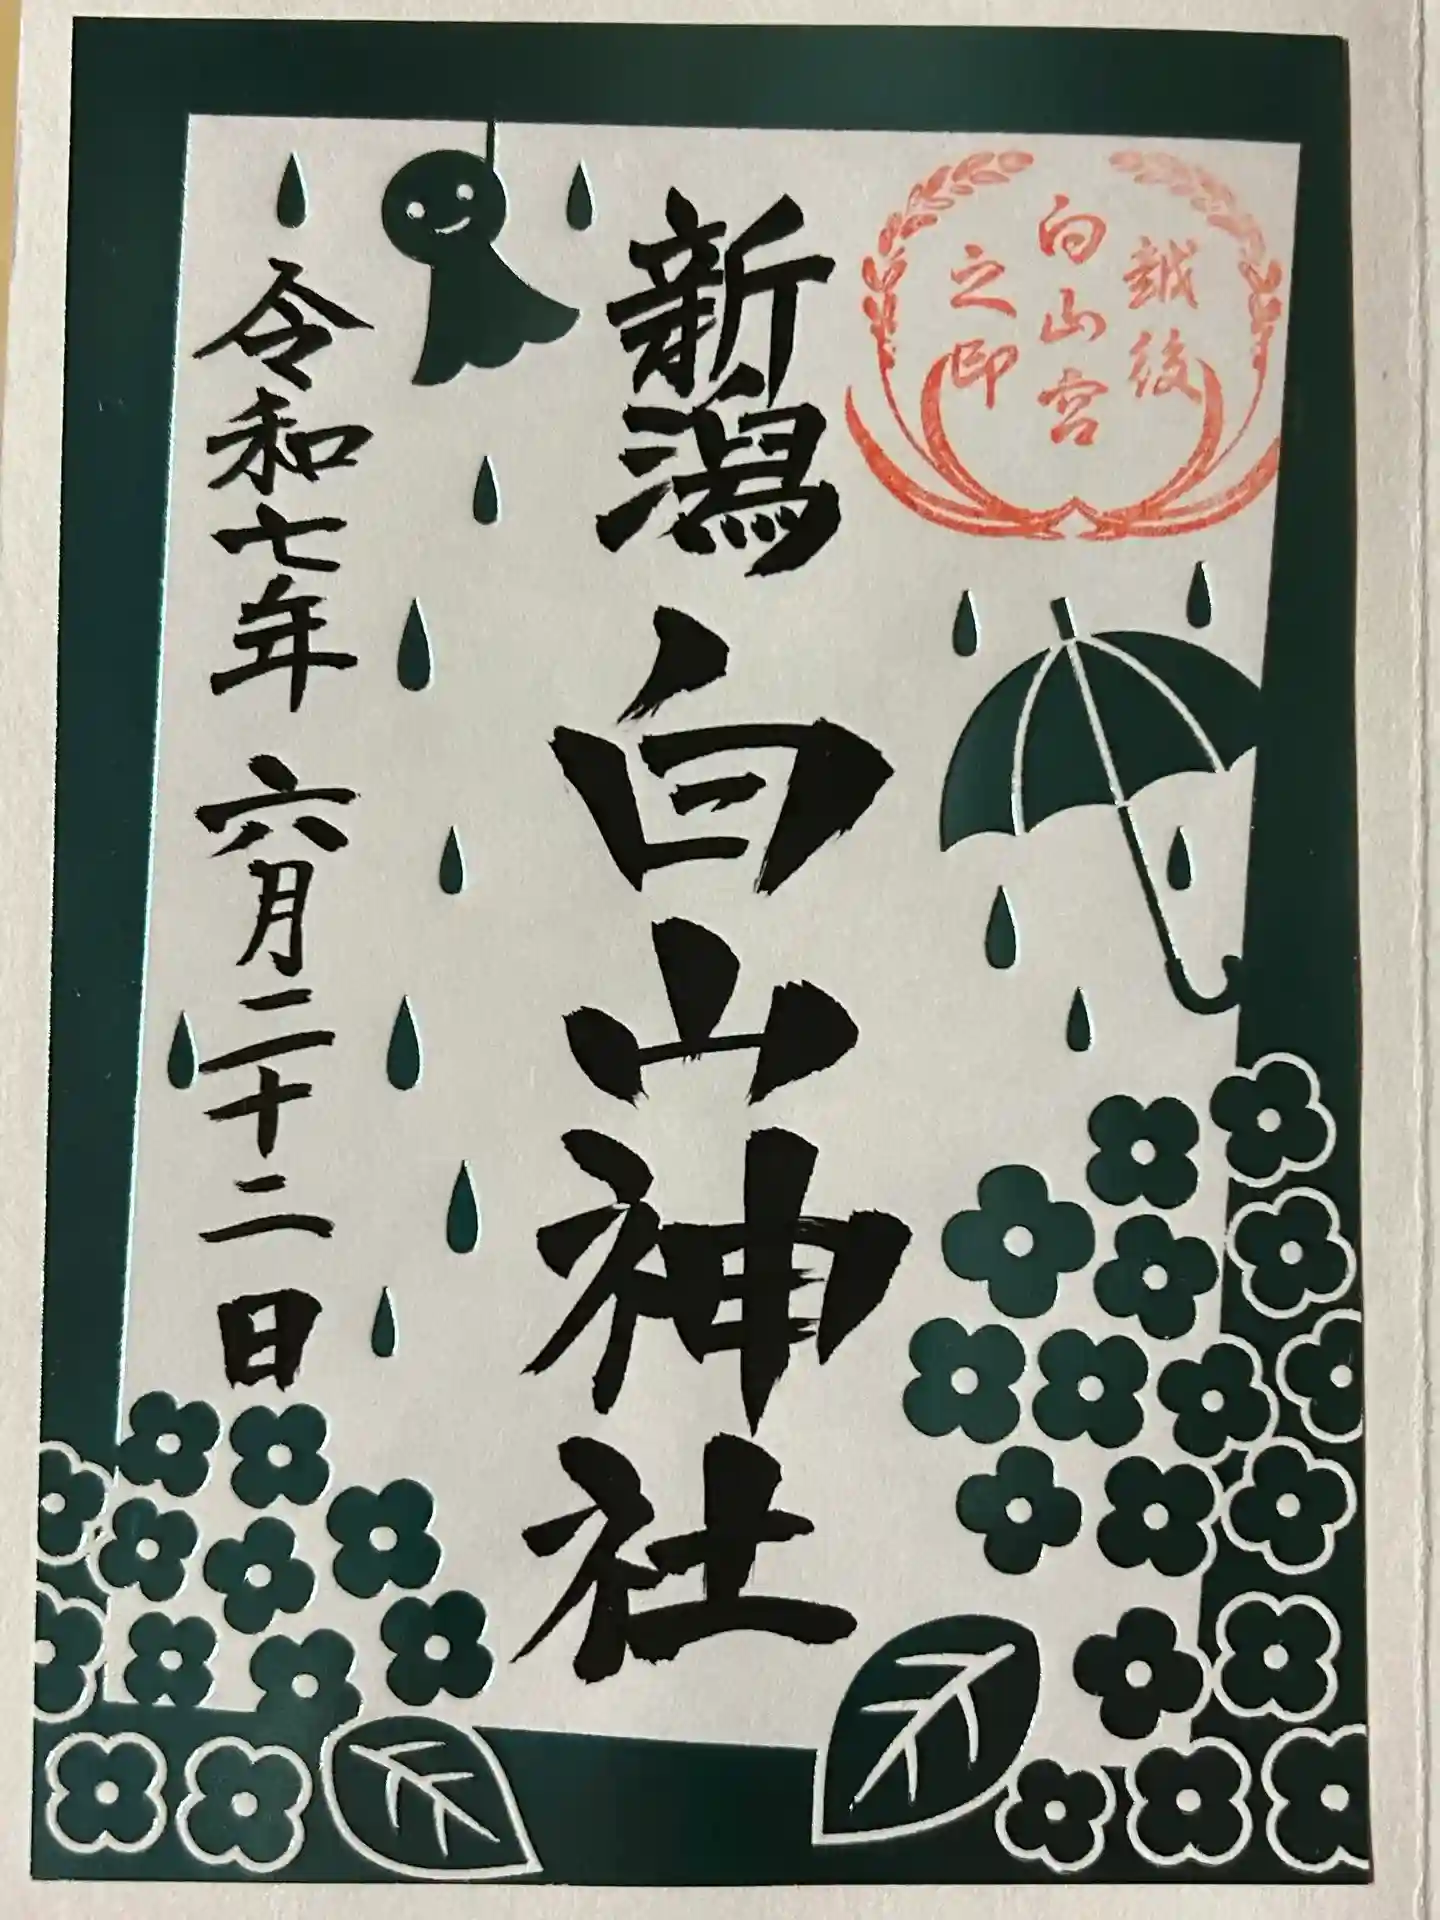 越後
白山宮
之印
新潟白山神社
令和七年 六月二十二日